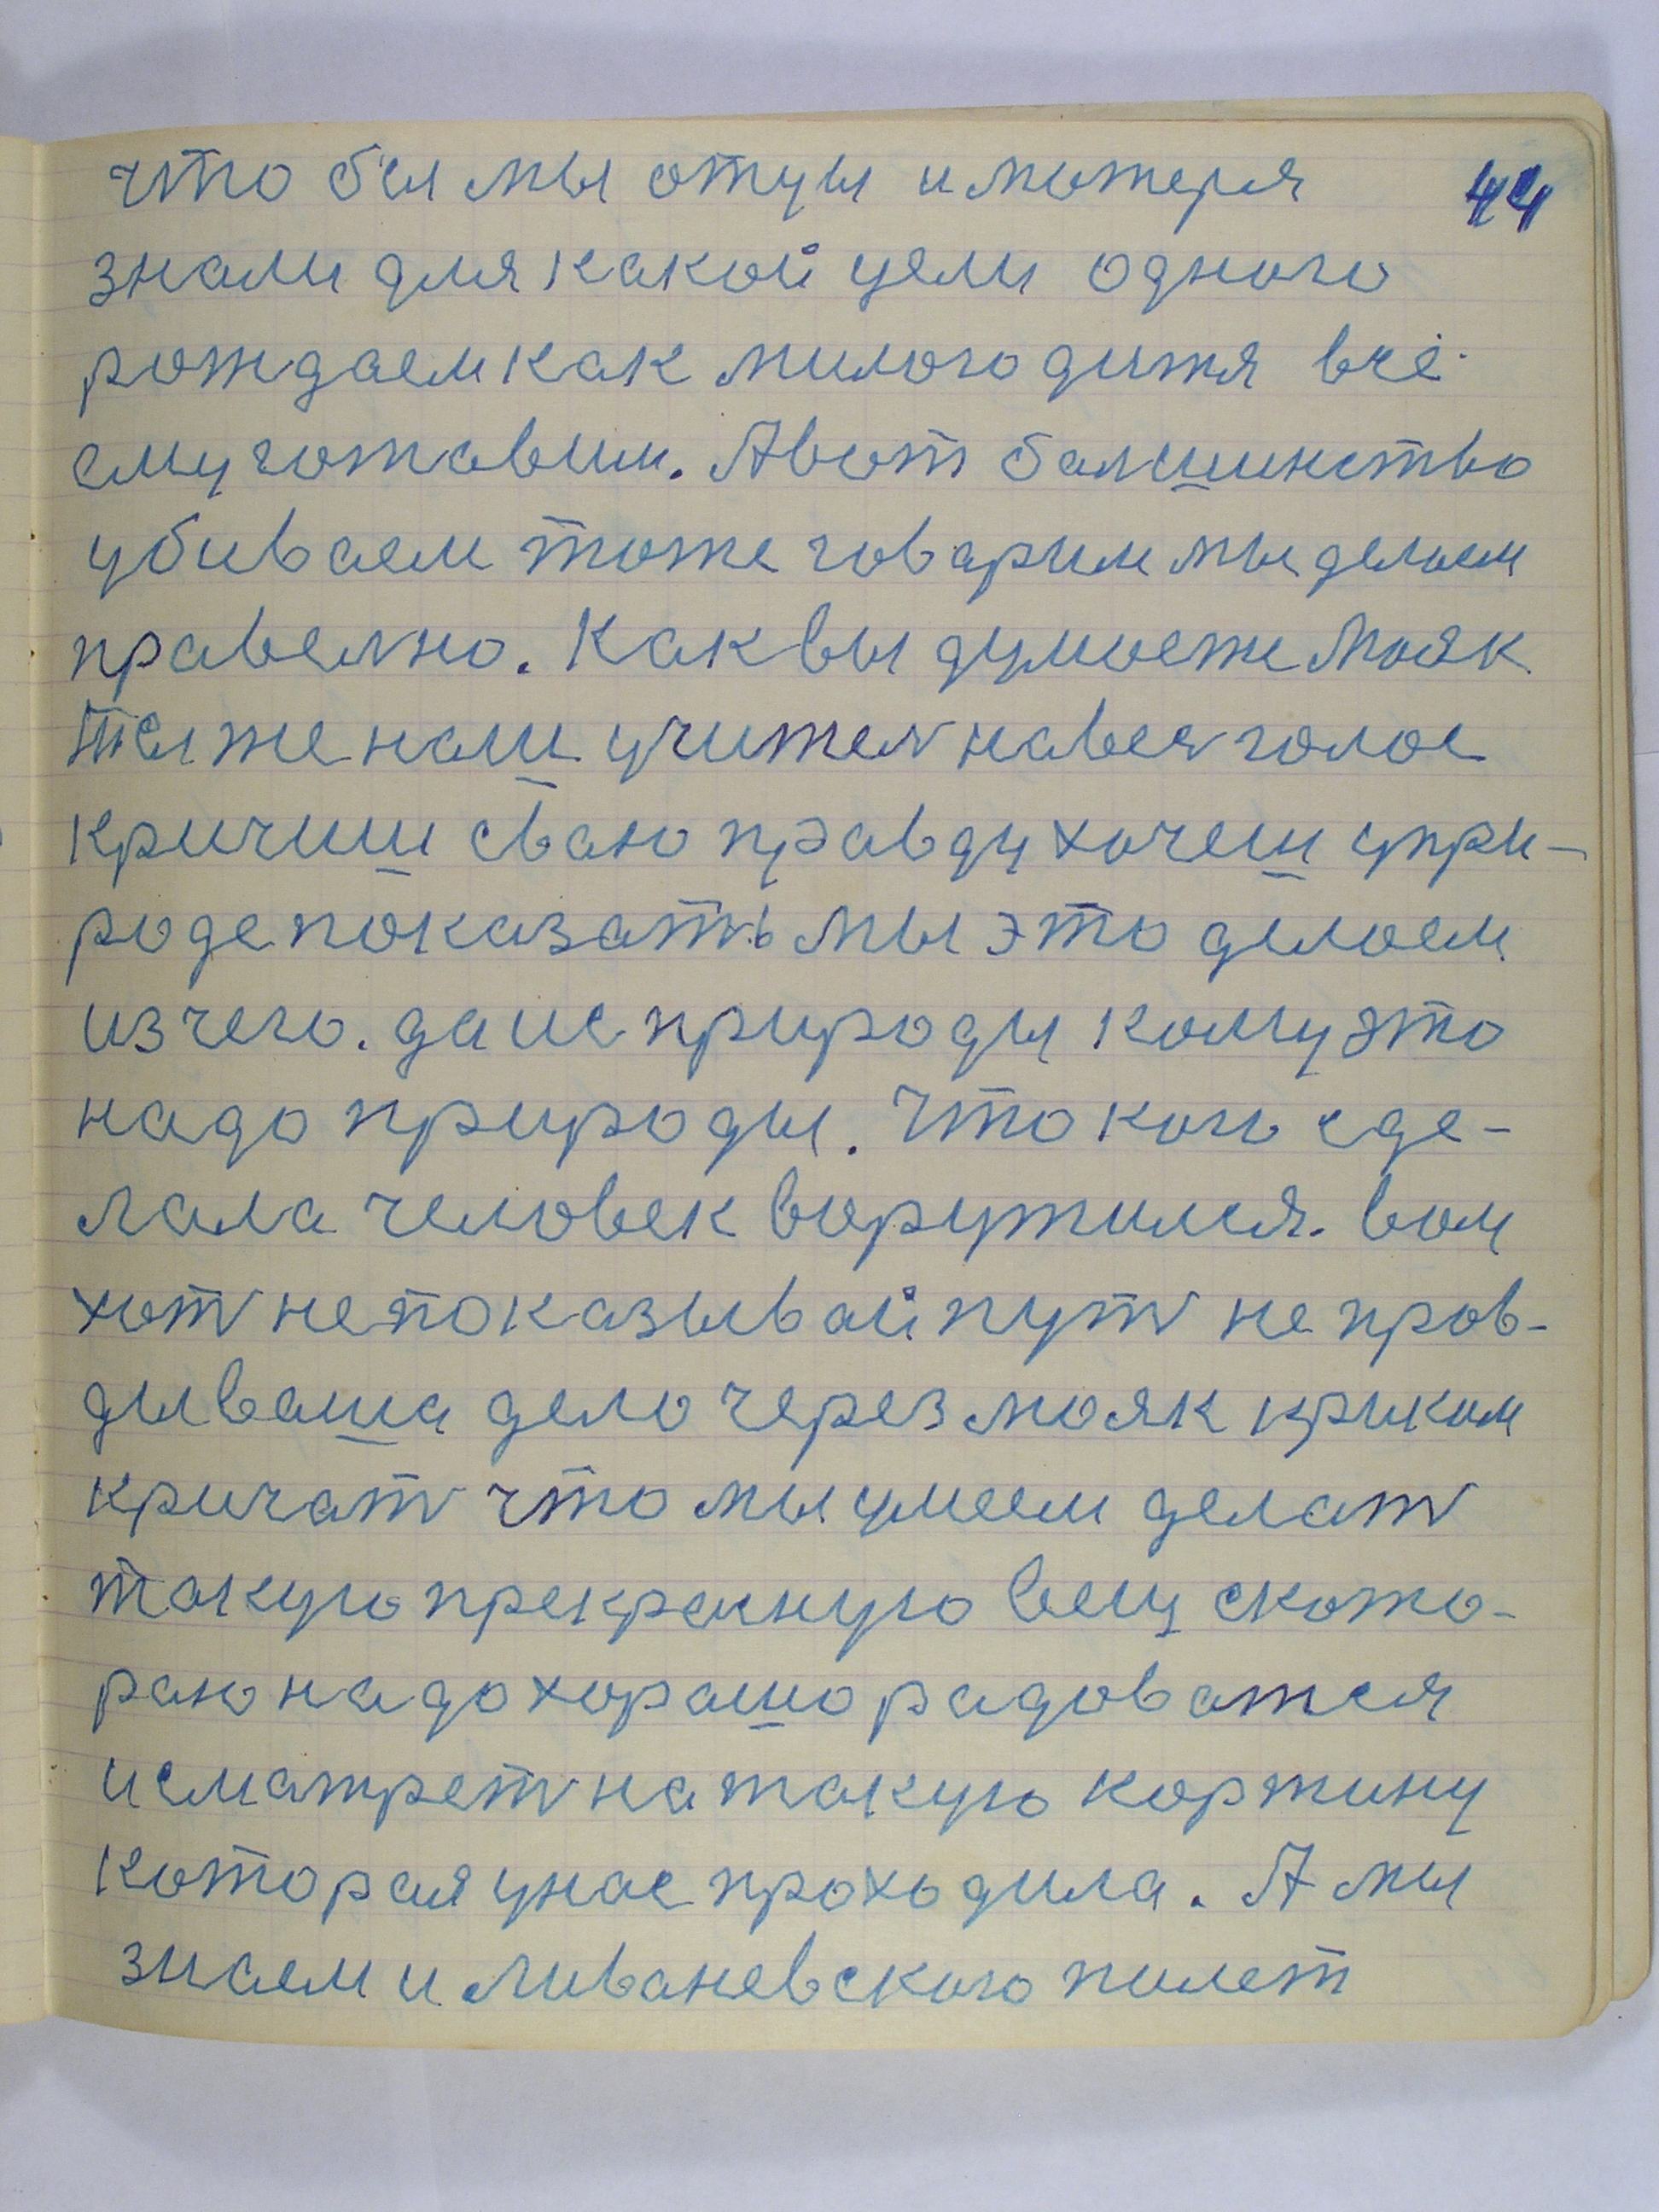 что бы мы отцы и матеря 44
знали для какой цели одного
рождаем как милого дитя всё
ему готавим. А вот балшинство
убиваем тоже говарим мы делаем
правелно. Как вы думаете Маяк
ты же наш учител на вес голос
кричиш сваю правду хочеш упри-
роде показатъ мы это делаем
из чего. да ис природы кому это
надо природы. Что кого сде-
лала человек
хот не показывай пут не прав-
ды ваша дело через маяк криком
кричат что мы умеем делат
такую прекрасную вещ скато-
раю надо харашо радоватся
и сматрет на такую картину
которая унас проходила. А мы
знаем и Ливаневского полет